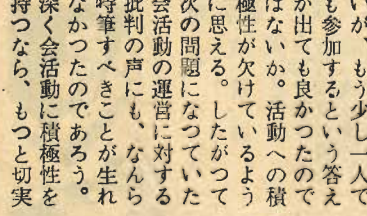 いが、もう少し一人で
も参加するという答え
が出ても良かつたので
はないか。活動への積
極性が欠けているよう
に思える。したがつて
次の問題になつていた
会活動の運営に対する
批判の声にも、なんら
時筆すべきことが生れ
なかつたのであろう。
深く会活動に積極性を
持つなら、もつと切実